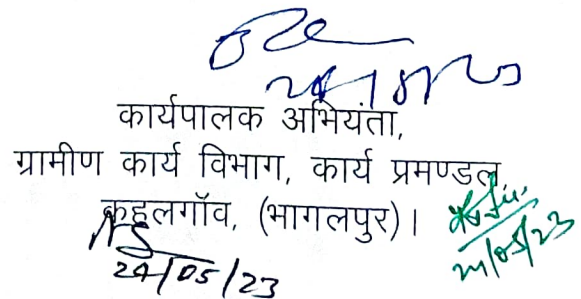 24/05/23
कार्यपालक अभियंता,
ग्रामीण कार्य विभाग, कार्य प्रमण्डल,
कहलगॉव, (भागलपुर)।
24/05/23
24/05/23